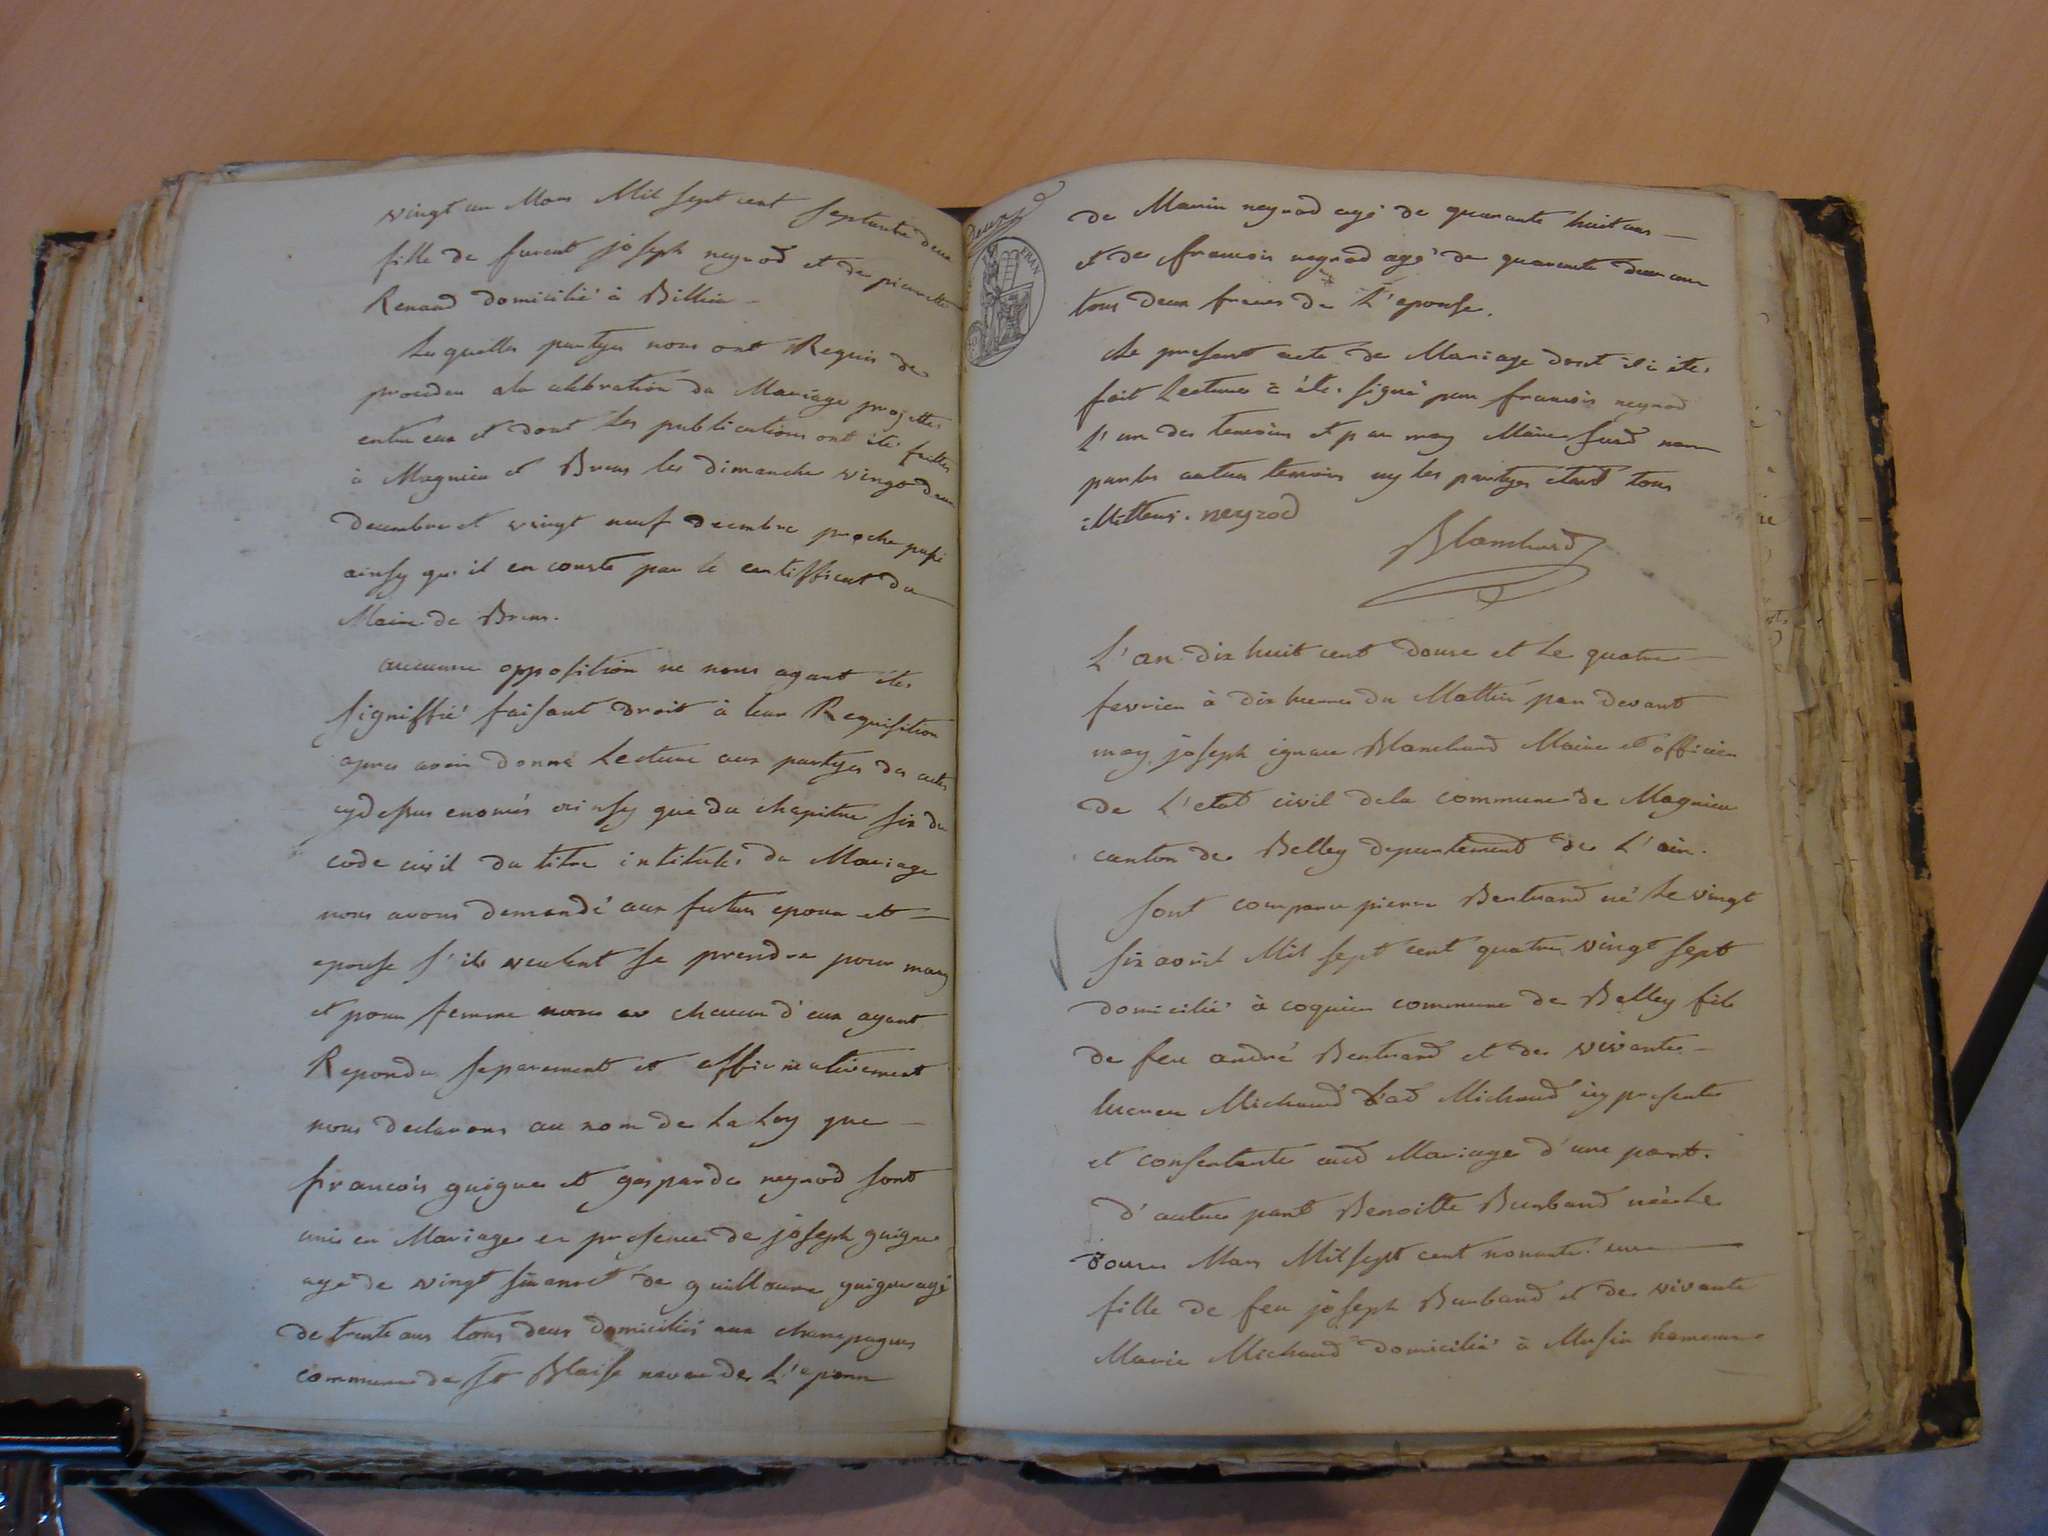 vingt un Mars Mil sept cent septante deux
fille de furent joseph neyrod et de pierrette
Renaud domicilié à Billieu
Lesquelles partyes nous ont Requis de
proceder a la celebration du Mariage projettes
entre eux et dont les publications ont étés faittes
à Magnieu et Brens les dimanche vingt deux
decembre et vingt neuf decembre proche passé
ainsy qu'il en conste par le certifficat du
Maire de Brens.
aucunne opposition ne nous ayant étés
signiffié faisant droit à leur Requisition
apres avoir donné Lecture aux partyes des actes
cydessus enoncés ainsy que du chapitre six du
code civil du titre intitulé du Mariage
nous avons demandé aux futurs epoux et
epouse s'ils veulent se prendre pour mary
et pour femme chacun d'eux ayant
Repondu separement et affirmativement
nous declarons au nom de La Loy que
francois guigue et gasparde neyrod sont
unis en Mariage en presence de joseph guigue
agé de vingt six ans et de guillaume guigue agé
de trente ans tous deux domiciliés aux champagnes
commune de St Blaise neveu de L'epoux
de Marin neyrod agé de quarante huit ans
et de francois neyrod agé de quarante deux ans
tous deux freres de L'epouse.
Le present acte de Mariage dont il a étés
fait Lecture a étés signé par francois neyrod
L'un des temoins et par moy Maire susd non
par les autres temoins ny les partyes etant tous
illitterés. neyrod
Blanchard
L'an dix huit cent douze et le quatre
fevrier à dix heures du Mattin par devant
moy joseph ignace Blanchard Maire et officier
de L'etat civil de la commune de Magnieu
canton de Belley departement de L'ain.
sont comparu pierre Bertrand né le vingt
six avril Mil sept cent quatre vingt sept
domicilié à coquier commune de Belley fils
de feu andré Bertrand et des vivante
Michaud Lad Michaud icy presente
et consentente aud Mariage d'une part.
d'autre part Benoitte Burband née le
douze Mars Mil sept cent nonante une
fille de feu joseph Burband et de vivante
Marie Michaud domicilié à Musin hameau
FRAN